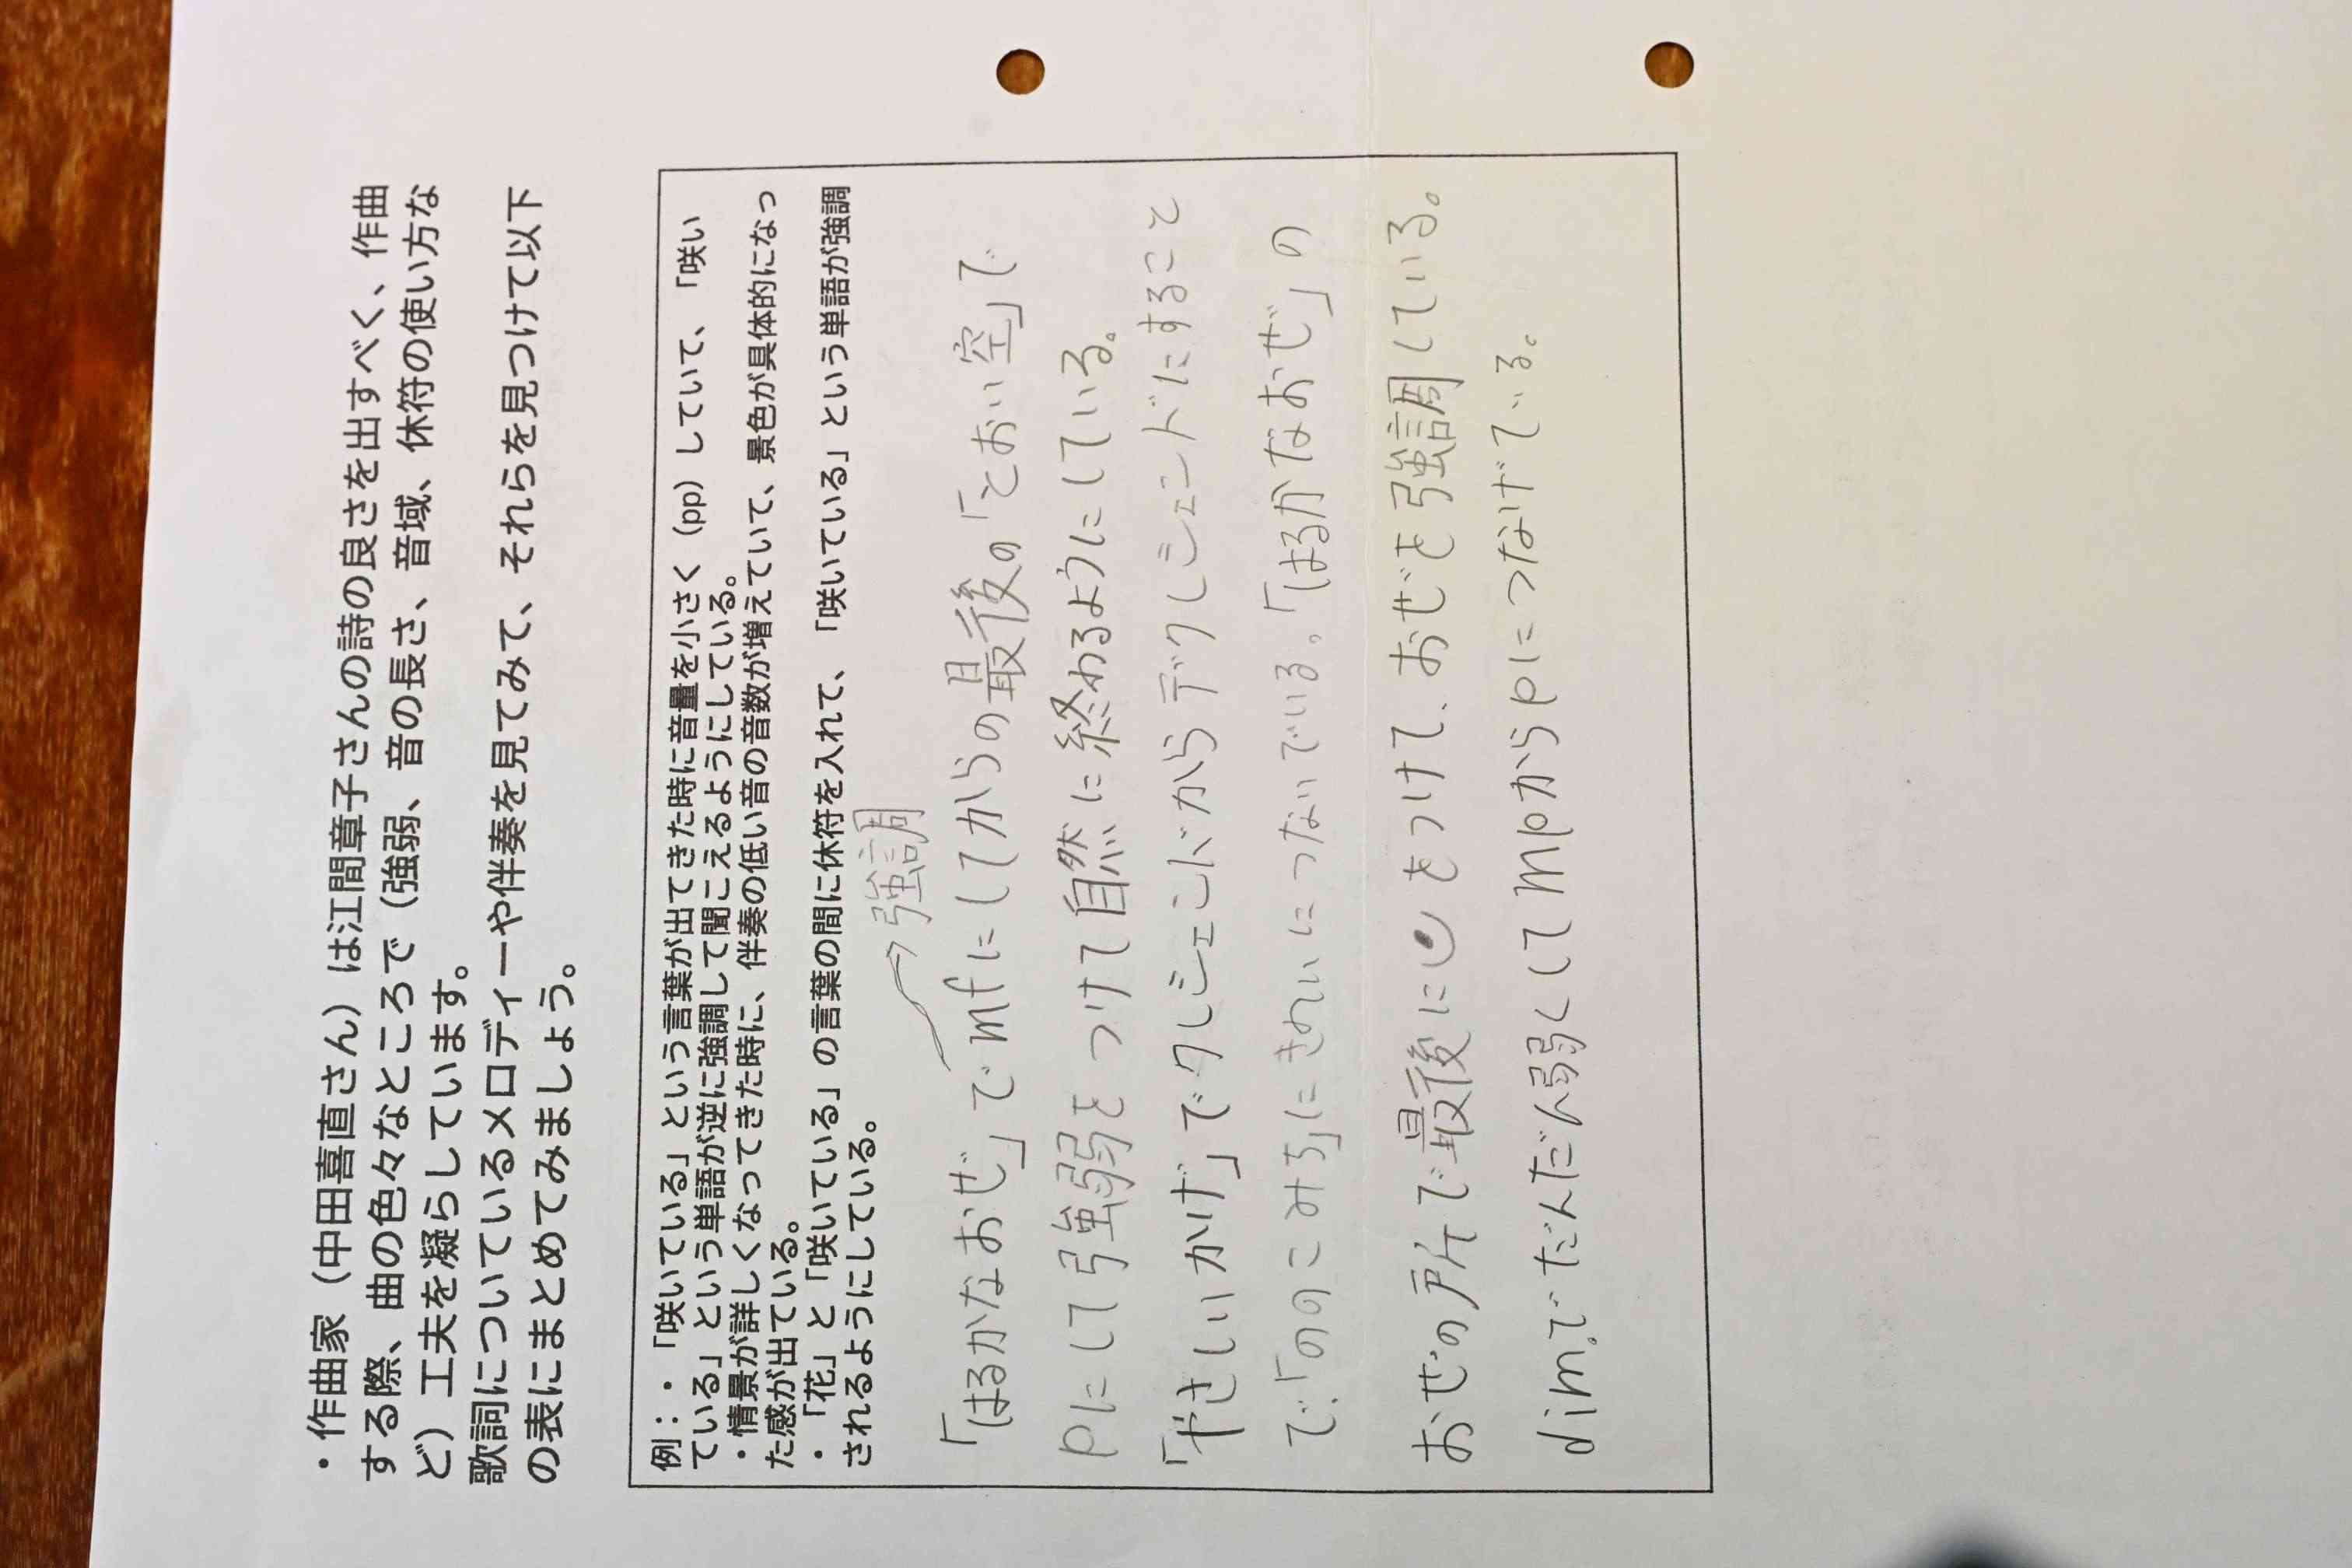 ・作曲家（中田喜直さん）は江間章子さんの詩の良さを出すべく、作曲
する際、曲の色々なところで（強弱、音の長さ、音域、休符の使い方な
ど）工夫を凝らしています。
歌詞についているメロディーや伴奏を見てみて、それらを見つけて以下
の表にまとめてみましょう。
例：・「咲いている」という言葉が出てきた時に音量を小さく（pp）していて、「咲い
ている」という単語が逆に強調して聞こえるようにしている。
・情景が詳しくなってきた時に、伴奏の低い音の音数が増えていて、景色が具体的になっ
た感が出ている。
・「花」と「咲いている」の言葉の間に休符を入れて、「咲いている」という単語が強調
されるようにしている。
→強調
「はるかなおぜ」でmfにしてからの最後の「とおい空」で
pにして強弱をつけて自然に終わるようにしている。
「やさしいかげ」でクレシェンドからデクレシェンドにすること
で、「ののこみち」にきれいにつないでいる。「はるかなおぜ」の
おぜの所で最後に𝄐をつけて、おぜを強調している。
dim.でだんだん弱くしてmpからpにつなげている。